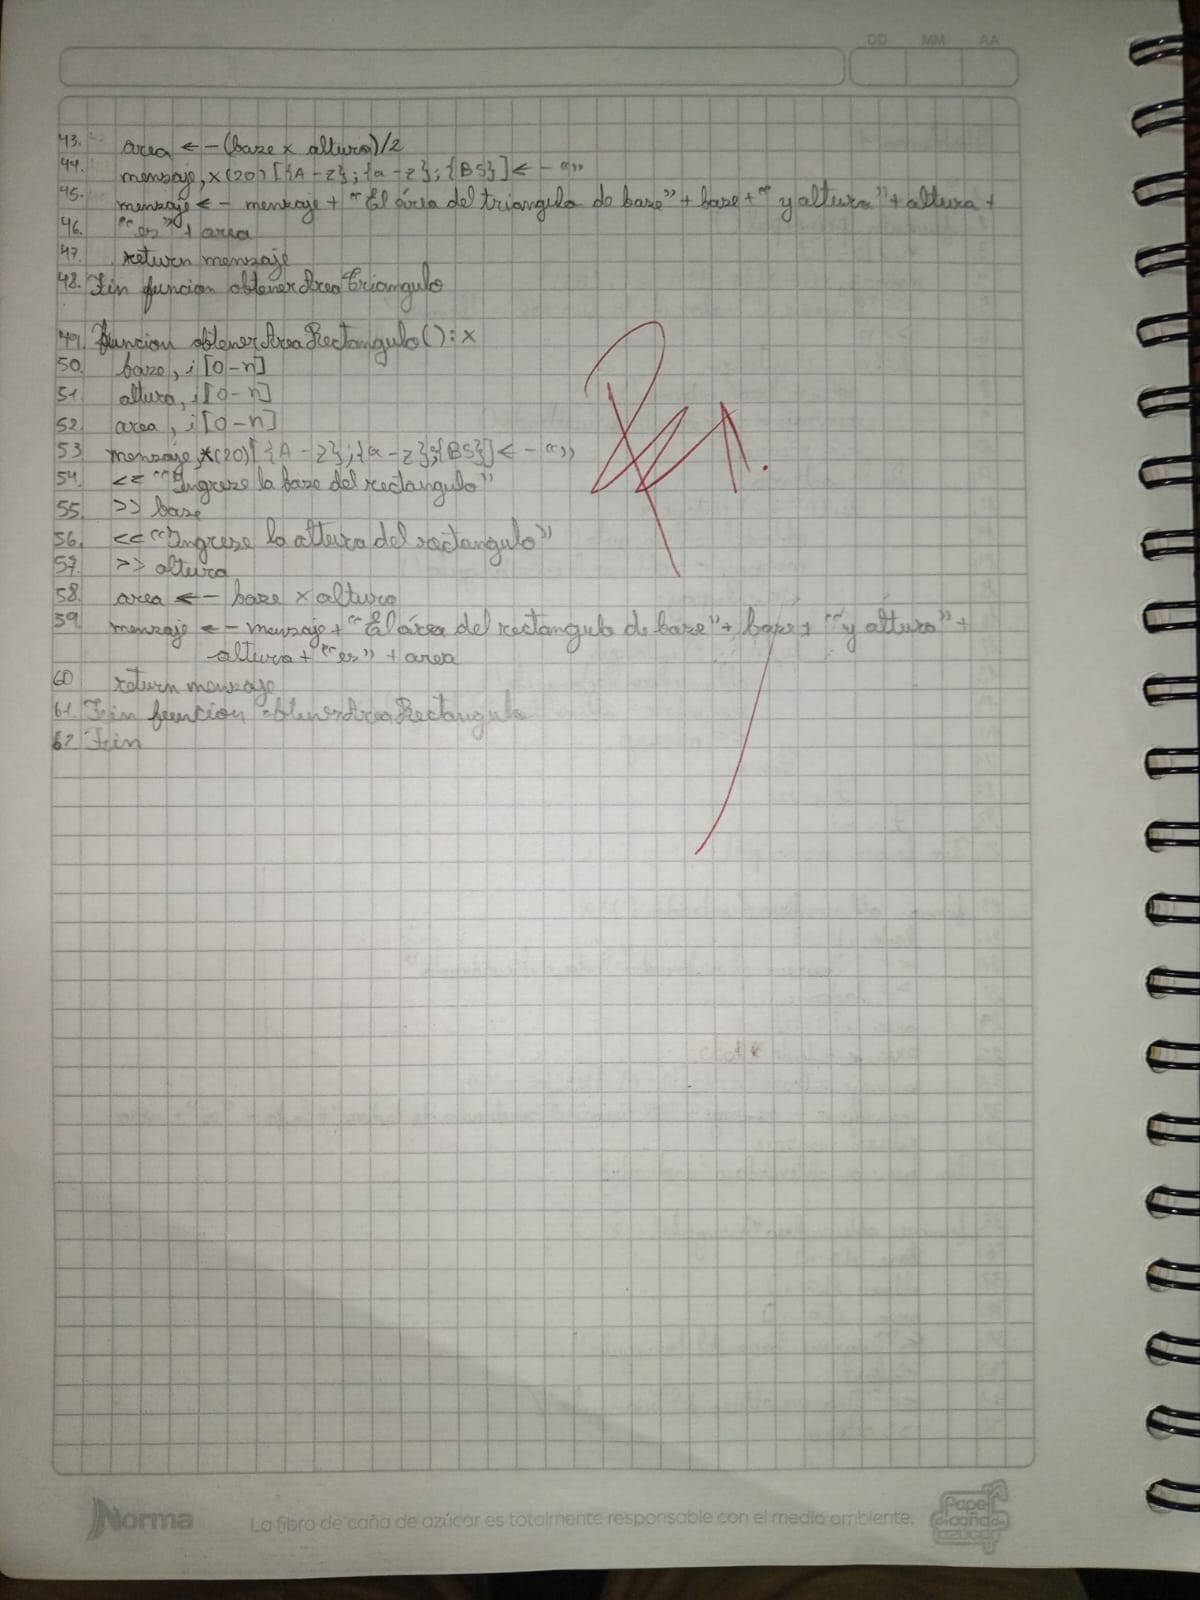 DD MM AA
43. area <- (base x altura)/2
44. mensaje, x(20) [{A-Z};{a-z};{BS}] <- “”
45. mensaje <- mensaje + “El área del triangulo de base” + base + “y altura” + altura +
46. “es” + area
47. return mensaje
48. Fin funcion obtenerAreaTriangulo
49. Funcion obtenerAreaRectangulo(): x
50. base, i [0-n]
51. altura, i [0-n]
52. area, i [0-n]
53 mensaje, x(20) [{A-Z};{a-z};{BS}] <- “”
54. << “Ingrese la base del rectangulo”
55. >> base
56. << “Ingrese la altura del rectangulo”
57. >> altura
58. area <- base x altura
59. mensaje <- mensaje + “El área del rectangulo de base” + base + “y altura” +
altura + “es” + area
60 return mensaje
61. Fin funcion obtenerAreaRectangulo
62 Fin
Norma
La fibra de caña de azúcar es totalmente responsable con el medio ambiente.
Papel de caña de azúcar